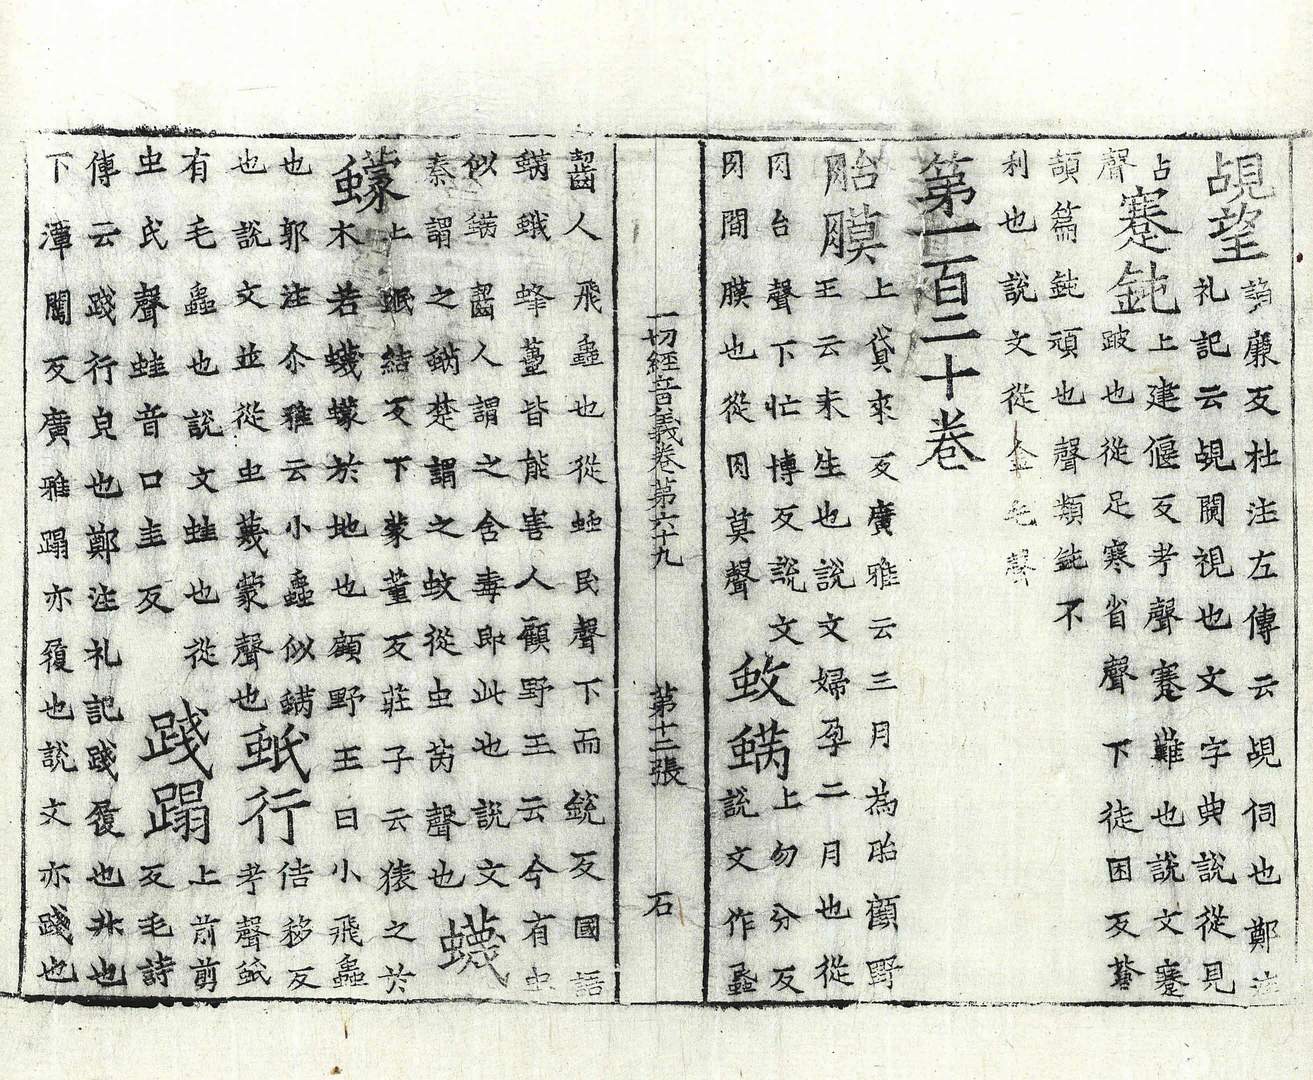 覘望
諂廉反杜注左傳云覘伺也鄭注
礼記云覘闚視也文字典說從見
占
聲
蹇鈍
上建偃反考聲蹇難也說文蹇
跛也從足寒省聲下徒困反蒼
頡篇鈍頑也聲類鈍不
利也說文從金屯聲
第一百二十卷
胎膜
上貸來反廣雅云三月為胎顧野
王云未生也說文婦孕二月也從
肉台聲下忙博反說文
肉間膜也從肉莫聲
蚊蜹
上勿分反
說文作蟁
一切經音義卷第六十九 第十二張 石
齧人飛蟲也從䖵民聲下而銳反國語
蜹蛾蜂蠆皆能害人顧野王云今有虫
似蜹齧人謂之含毒即此也說文
秦謂之蜹楚謂之蚊從虫芮聲也
蠛
蠓
上眠結反下蒙董反莊子云猿之於
木若蠛蠓於地也顧野王曰小飛蟲
也郭注尒雅云小蟲似蜹
也說文並從虫蔑蒙聲也
蚔行
佶移反
考聲蚔
有毛蟲也說文蛙也從
虫氏聲蛙音口圭反
踐蹋
上前剪
反毛詩
傳云踐行皃也鄭注礼記踐履也 也
下潭闔反廣雅蹋亦履也說文亦踐也